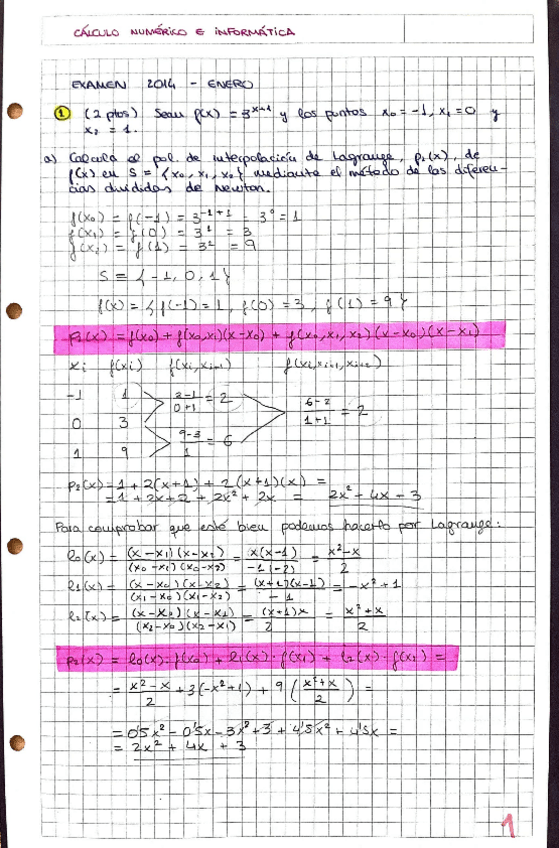 CÁLCULO NUMÉRICO E INFORMÁTICA
EXAMEN 2014 - ENERO
① (2 ptos) Sean f(x) = 3^(x+1) y los puntos x₀ = -1, x₁ = 0 y
x₂ = 1.
a) Calcula el pol. de interpolación de Lagrange, p₂(x), de
f(x) en S = {x₀, x₁, x₂} mediante el método de las diferen-
cias divididas de Newton.
f(x₀) = f(-1) = 3^(-1+1) = 3⁰ = 1
f(x₁) = f(0) = 3¹ = 3
f(x₂) = f(1) = 3² = 9
S = {-1, 0, 1}
f(x) = {f(-1) = 1, f(0) = 3, f(1) = 9}
P₂(x) = f(x₀) + f(x₀,x₁)(x-x₀) + f(x₀,x₁,x₂)(x-x₀)(x-x₁)
xi f(xi) f(xi,xi+1) f(xi,xi+1,xi+2)
-1 1 (3-1)/(0+1) = 2 (6-2)/(1+1) = 2
0 3
1 9 (9-3)/1 = 6
P₂(x) = 1 + 2(x+1) + 2(x+1)(x) =
= 1 + 2x + 2 + 2x² + 2x = 2x² - 4x - 3
Para comprobar que esté bien podemos hacerlo por Lagrange:
l₀(x) = (x-x₁)(x-x₂)/(x₀-x₁)(x₀-x₂) = x(x-1)/-1(-2) = (x²-x)/2
l₁(x) = (x-x₀)(x-x₂)/(x₁-x₀)(x₁-x₂) = (x+1)(x-1)/-1 = -x² + 1
l₂(x) = (x-x₀)(x-x₁)/(x₂-x₀)(x₂-x₁) = (x+1)x/2 = (x²+x)/2
P₂(x) = l₀(x)·f(x₀) + l₁(x)·f(x₁) + l₂(x)·f(x₂) =
= (x²-x)/2 + 3(-x²+1) + 9((x²+x)/2) =
= 0'5x² - 0'5x - 3x² + 3 + 4'5x² + 4'5x =
= 2x² + 4x + 3
1